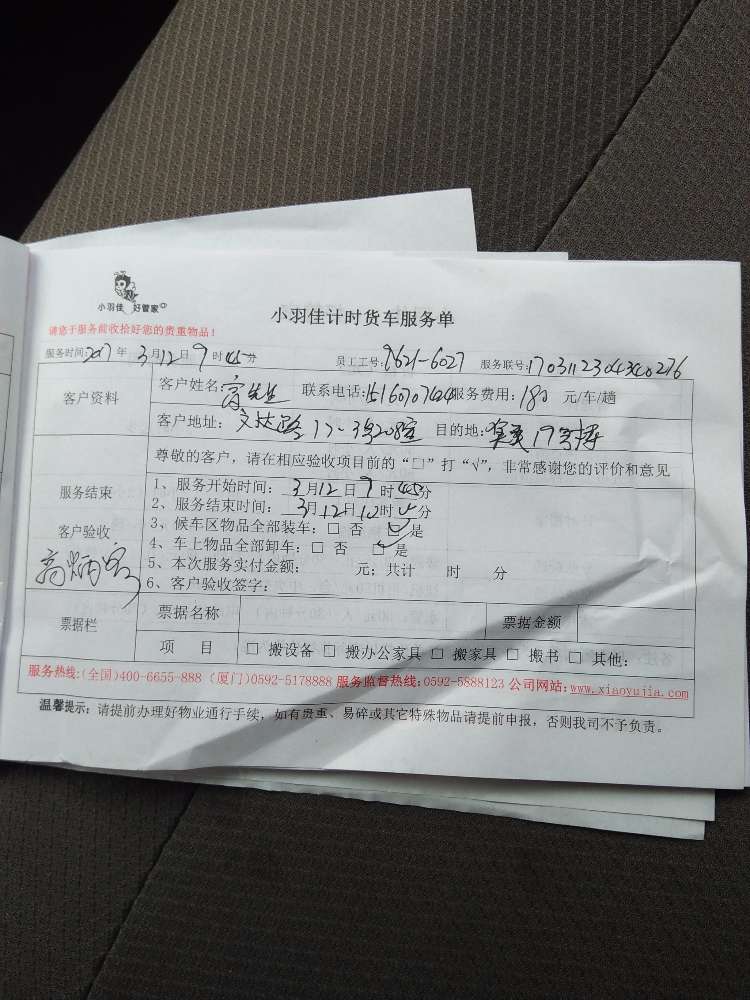 小羽佳 好管家
小羽佳计时货车服务单
请您于服务前收拾好您的贵重物品！
服务时间:2017年 3月12日9时45分 员工工号:9621-6027 服务联号:
客户资料
客户姓名: 先生 联系电话: 服务费用:180 元/车/趟
客户地址: 目的地:
尊敬的客户，请在相应验收项目前的“□”打“√”，非常感谢您的评价和意见
服务结束
客户验收
1、服务开始时间: 3月12日9时45分
2、服务结束时间: 3月12日12时 分
3、候车区物品全部装车: □ 否 □ 是
4、车上物品全部卸车: □ 否 □ 是
5、本次服务实付金额: 元; 共计 时 分
6、客户验收签字:
票据栏
票据名称 票据金额
项 目 □ 搬设备 □ 搬办公家具 □ 搬家具 □ 搬书 □ 其他:
服务热线:(全国)400-6655-888 (厦门)0592-5178888 服务监督热线:0592-5888123 公司网站:www.xiaoyujia.com
温馨提示: 请提前办理好物业通行手续，如有贵重、易碎或其它特殊物品请提前申报，否则我司不予负责。